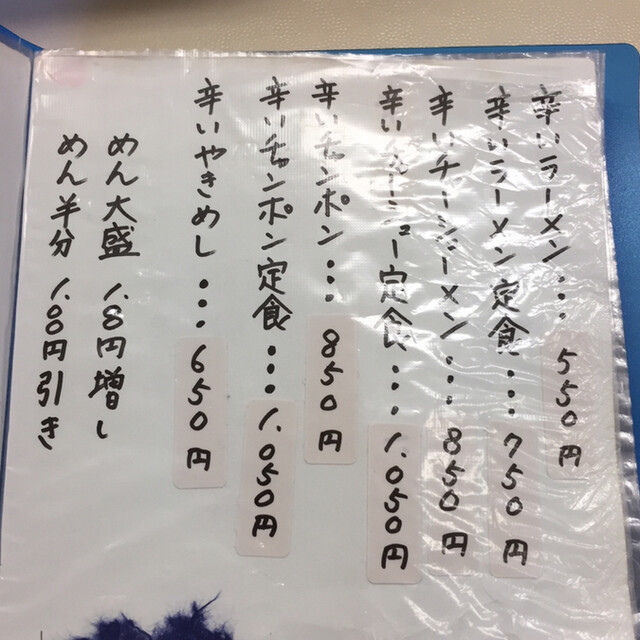 辛いラーメン・・・550円
辛いラーメン定食・・・750円
辛いチーシーメン・・・850円
辛い 定食・・・1,050円
辛いチャンポン・・・850円
辛いチャンポン定食・・・1,050円
辛いやきめし・・・650円
めん大盛 1.8円増し
めん半分 1.0円引き